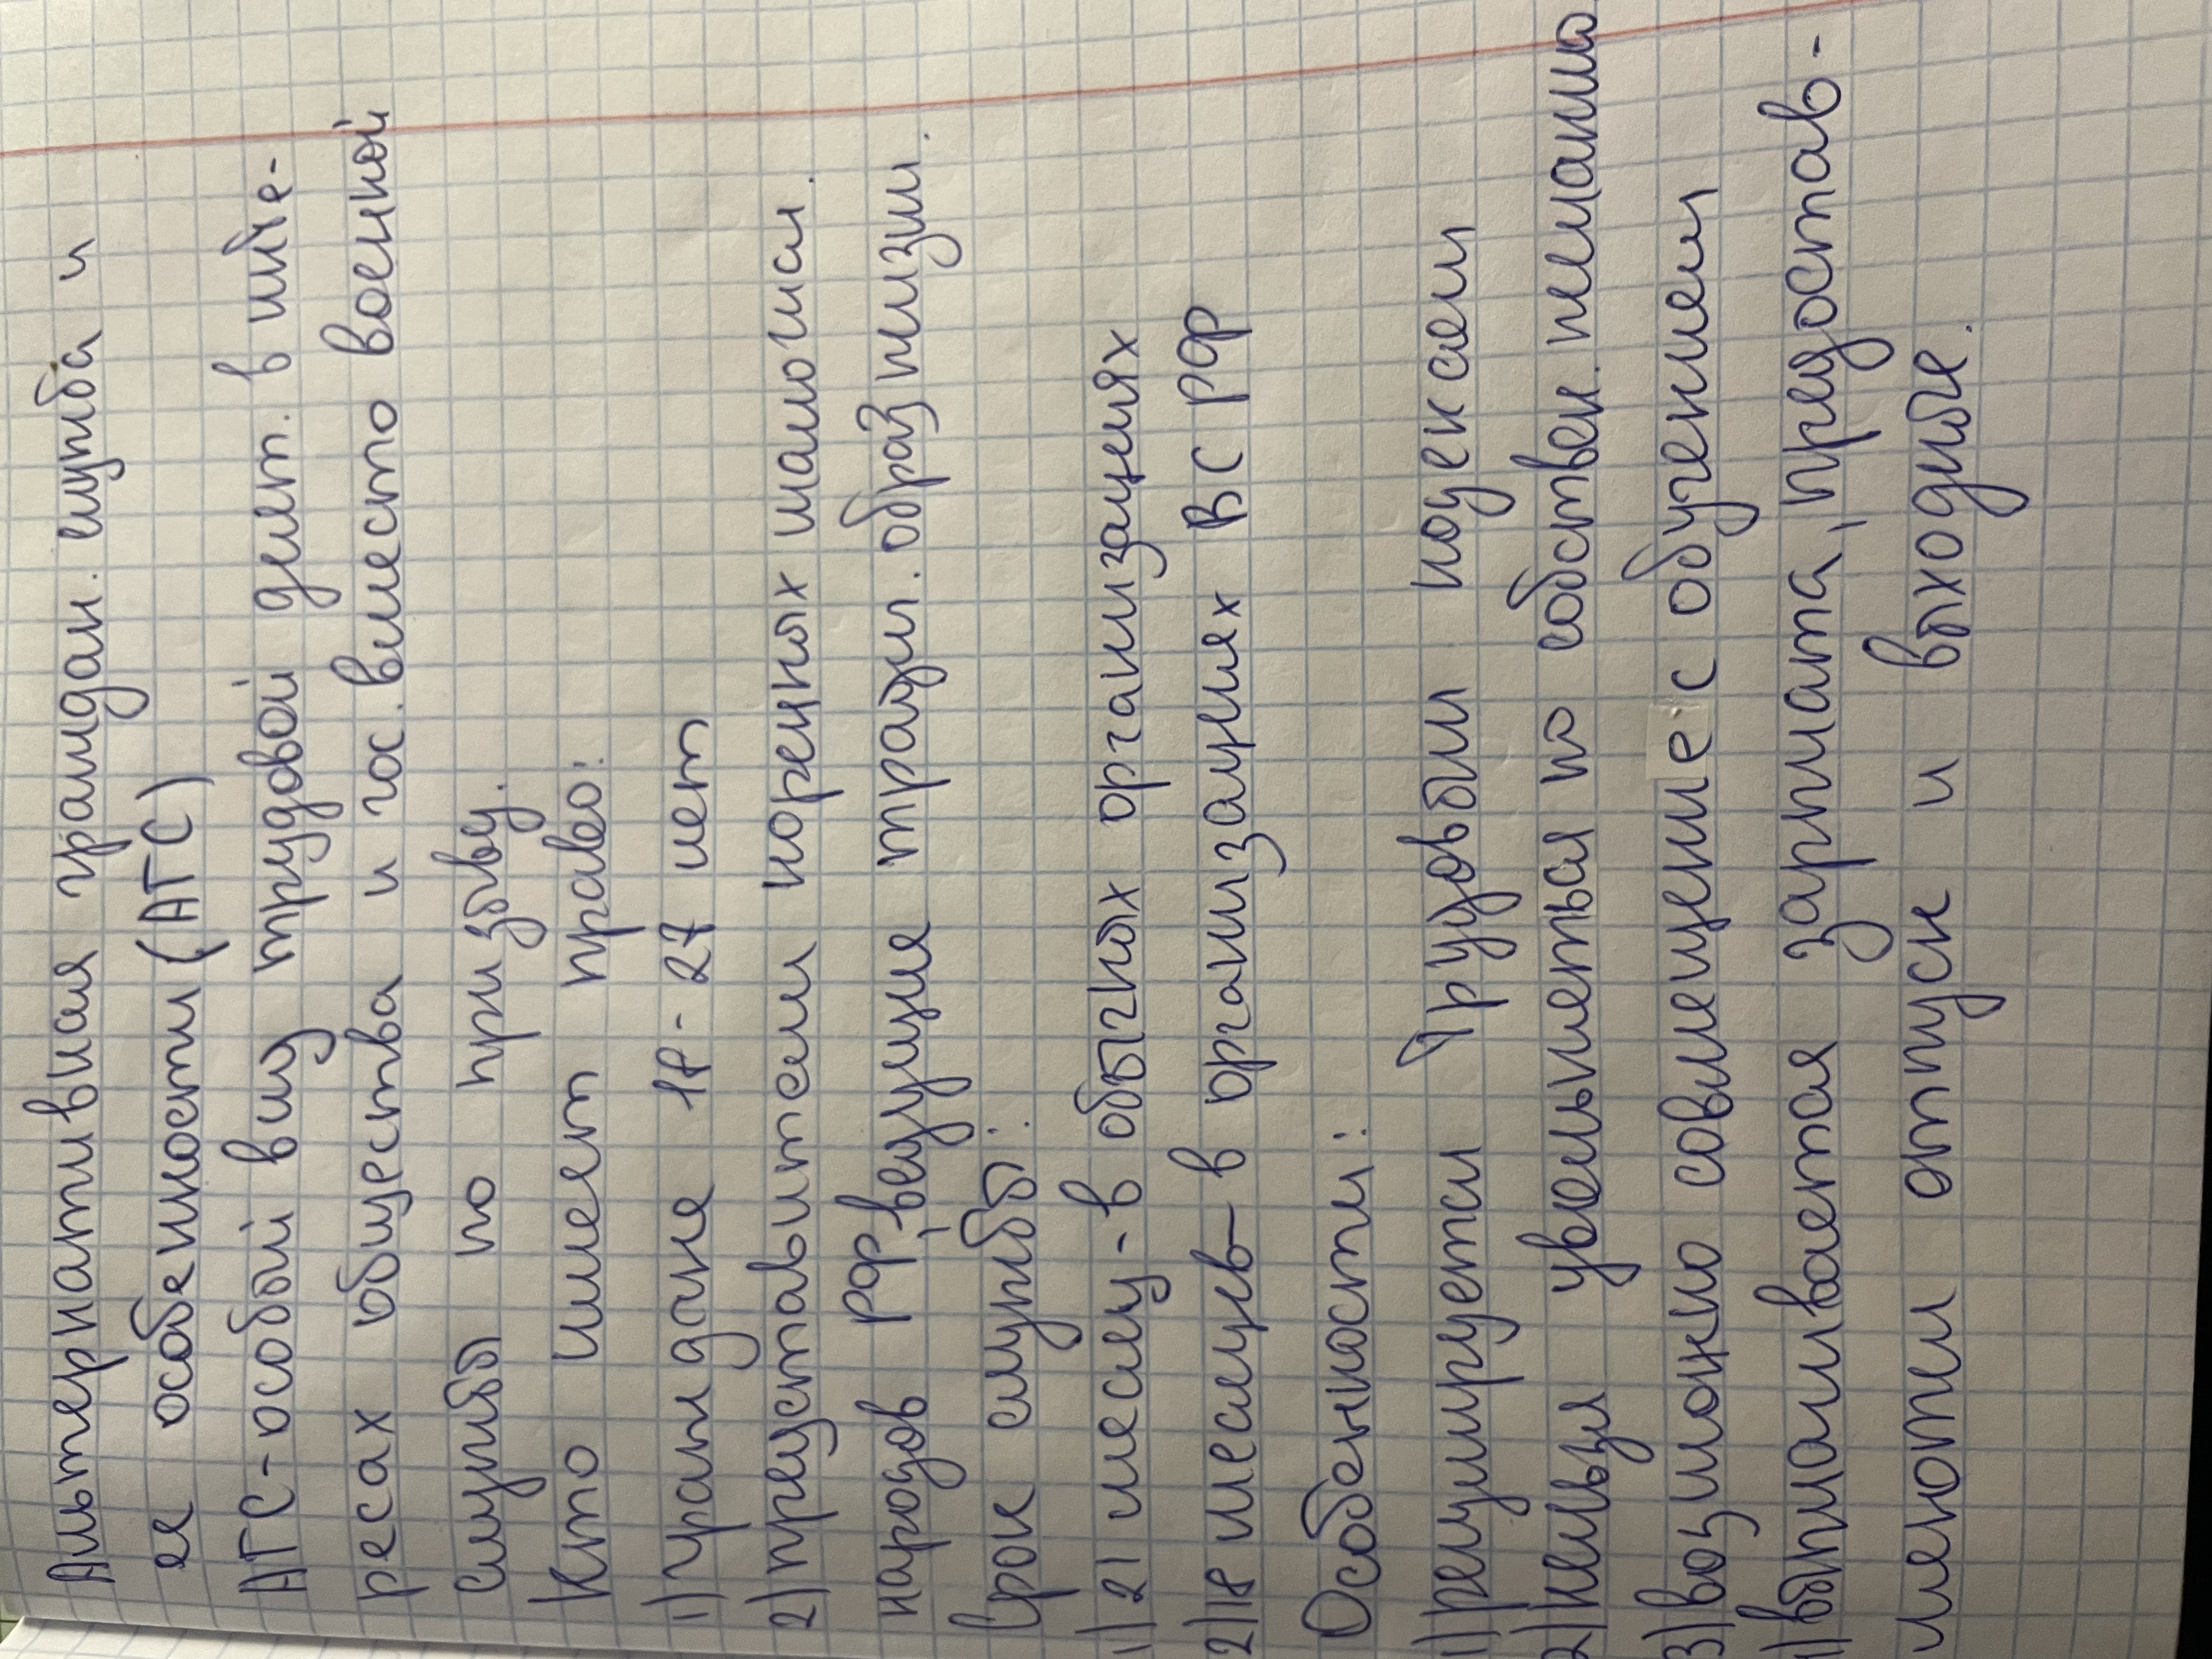 Альтернативная граждан. служба и
ее особенности (АГС)
АГС-особый вид трудовой деят. в инте-
ресах общества и гос. вместо военной
службы по призыву.
Кто имеет право:
1) граждане 18-27 лет
2) представители коренных малочисл.
народов РФ, ведущие традиц. образ жизни.
Срок службы:
1) 21 месяц - в обычных организациях
2) 18 месяцев - в организациях ВС РФ
Особенности:
1) регулируется Трудовым кодексом
2) нельзя увольняться по собствен. желанию
3) возможно совмещение с обучением
1) выплачивается зарплата, предостав-
ляются отпуск и выходные.